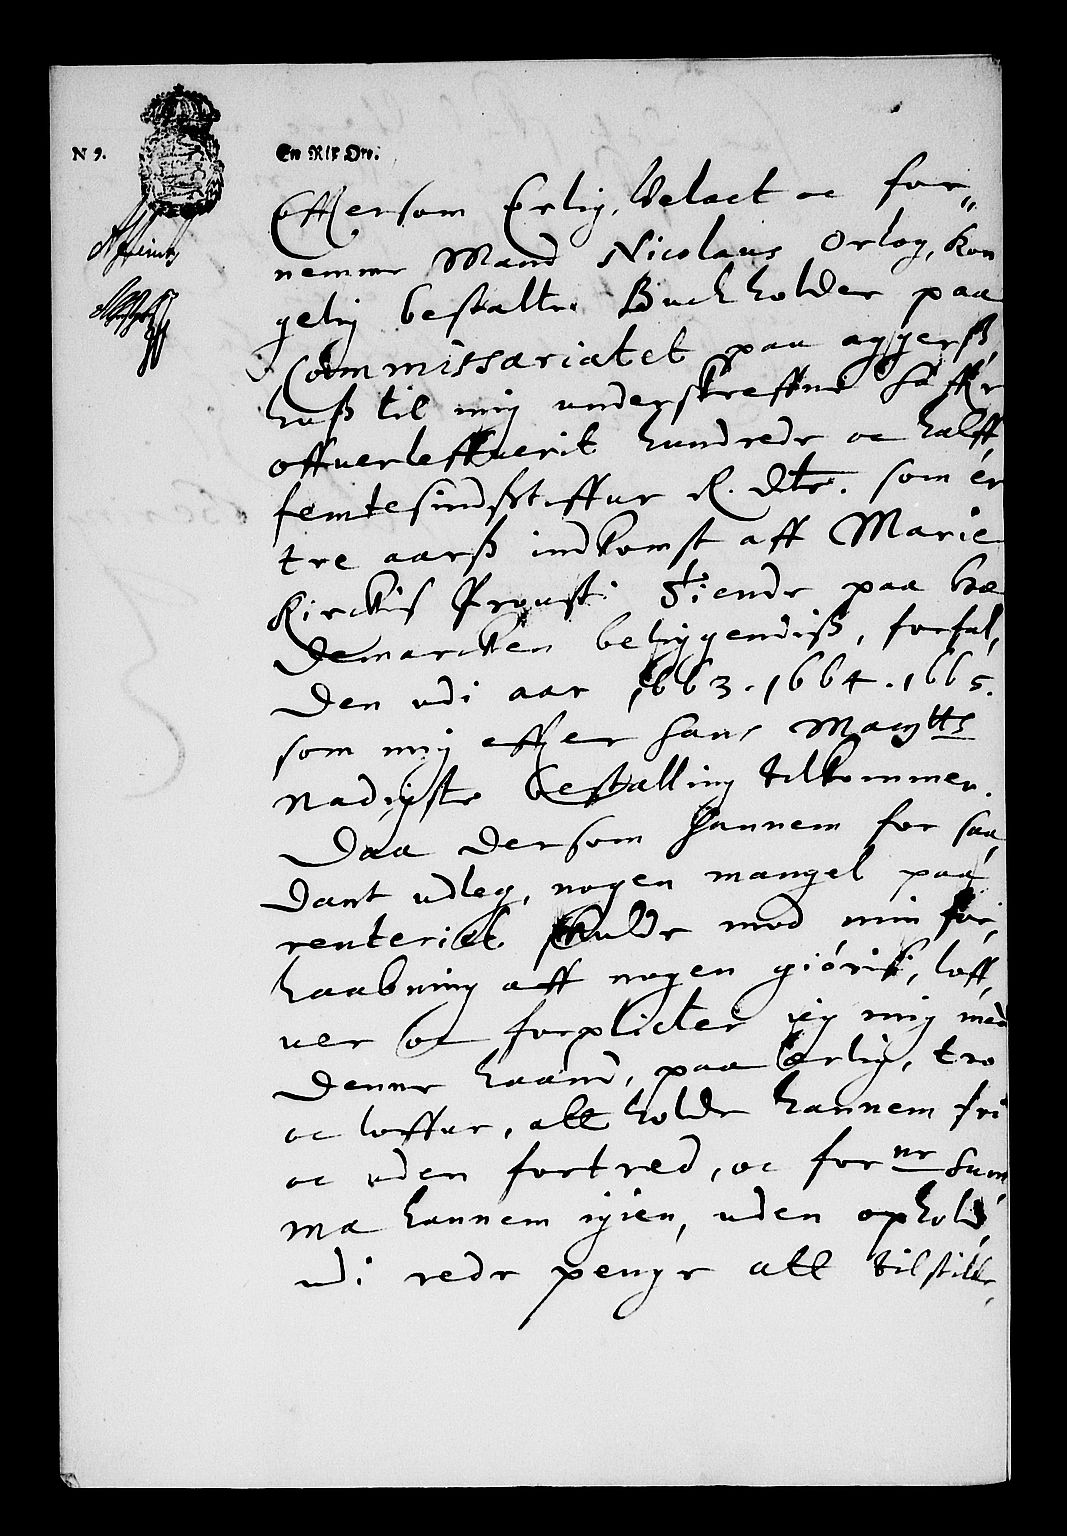 N 9.
En Rix Ort.
Effersom Erlig, Velact oc for„
nemme Mand Nicolaus Orlog, Kon
gelig bestalte Buchholder paa
Commissariatet paa aggerß,
huß til mig underskreffne haffr
offuerleffuerit hundrede oc halff
femtesindstiffue R. dtr. som er
tre aarß indkomst aff Marie
Kirckis Prousti Tiende paa he
demarcken beliggendiß, forfal,
den udi aar 1663. 1664. 1665.
som mig effter hans Maytts
nadigste bestalling tilkommer.
Daa dersom hannem for saa,
dant udleg, nogen mangel paa
renteriet skulde mod min for,
haabning aff nogen giöris, loff,
uer oc forplicter ieg mig med
denne haand, paa ærlig, tro
oc loffue, att holde hannem fri
oc uden fortred, oc fornr Sum,
ma hannem igien, uden ophold,
udi rede penge att tilstille,